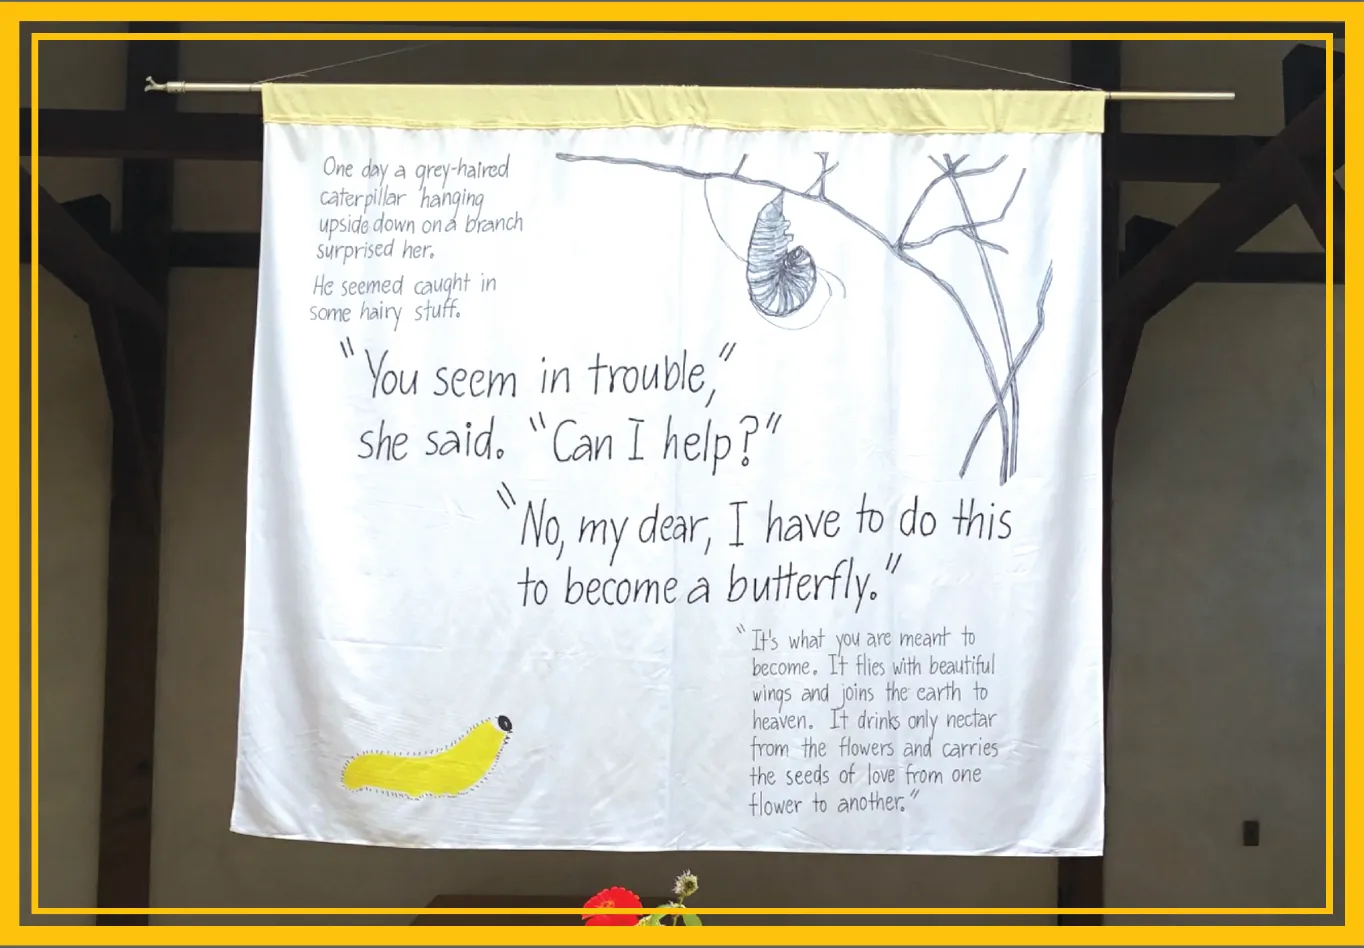 One day a grey-haired
caterpillar hanging
upside down on a branch
surprised her.
He seemed caught in
some hairy stuff.
"You seem in trouble,"
she said. "Can I help?"
"No, my dear, I have to do this
to become a butterfly."
"It's what you are meant to
become. It flies with beautiful
wings and joins the earth to
heaven. It drinks only nectar
from the flowers and carries
the seeds of love from one
flower to another."